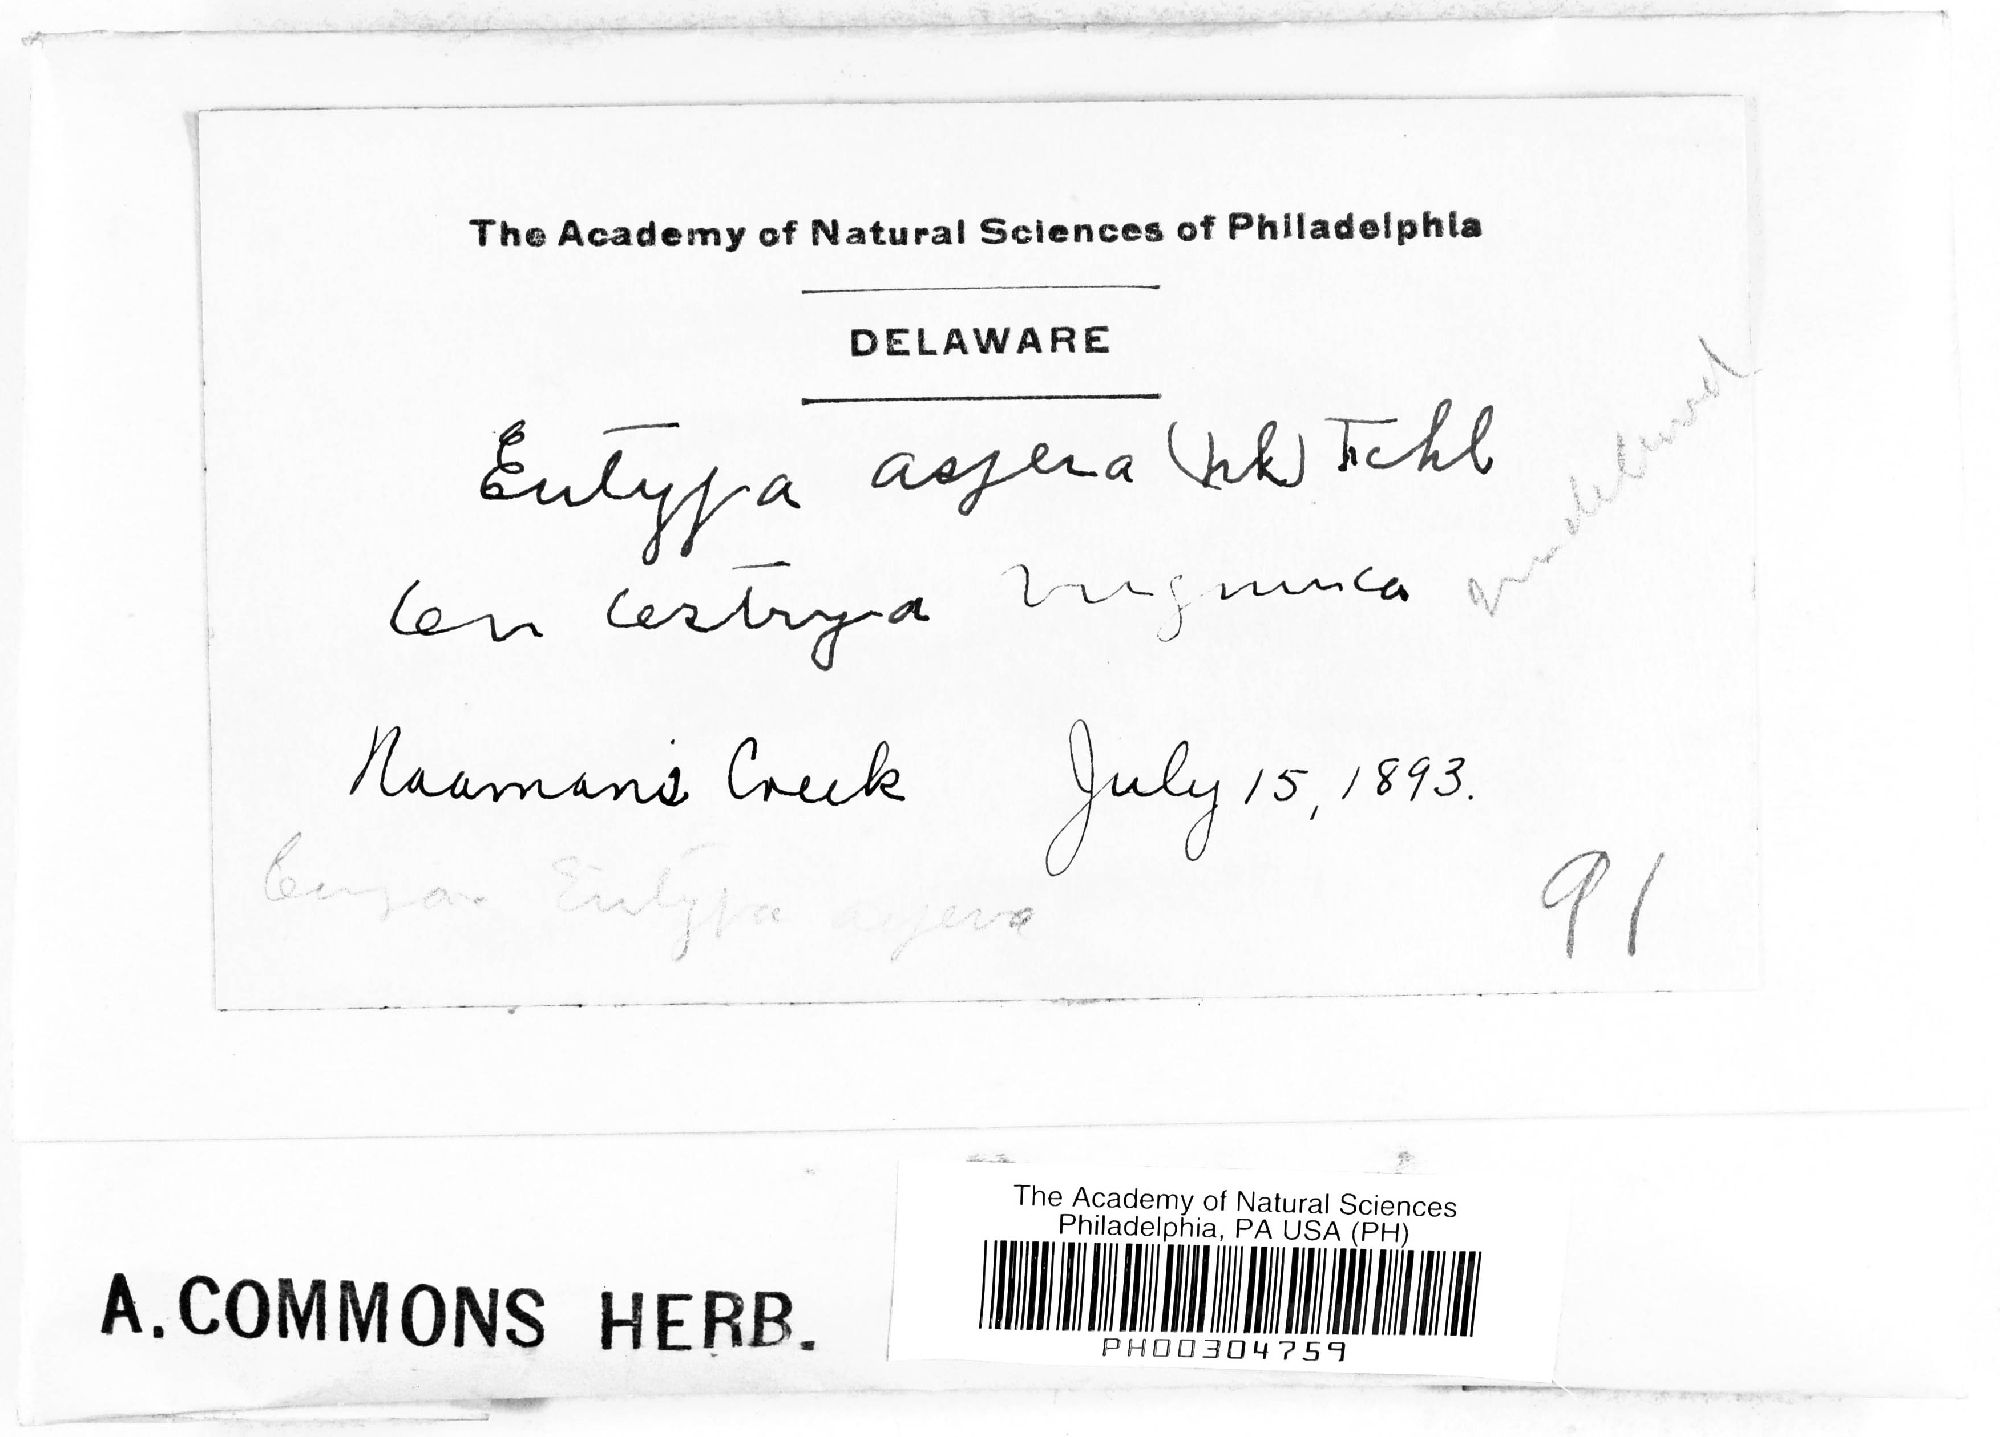 The Academy of Natural Sciences of Philadelphia
DELAWARE
Eutypa aspera (Nk) Fckl
on Ostrya virginica
Naaman's Creek July 15, 1893.
Eutypa aspera
91
A. COMMONS HERB.
The Academy of Natural Sciences
Philadelphia, PA USA (PH)
PH00304759